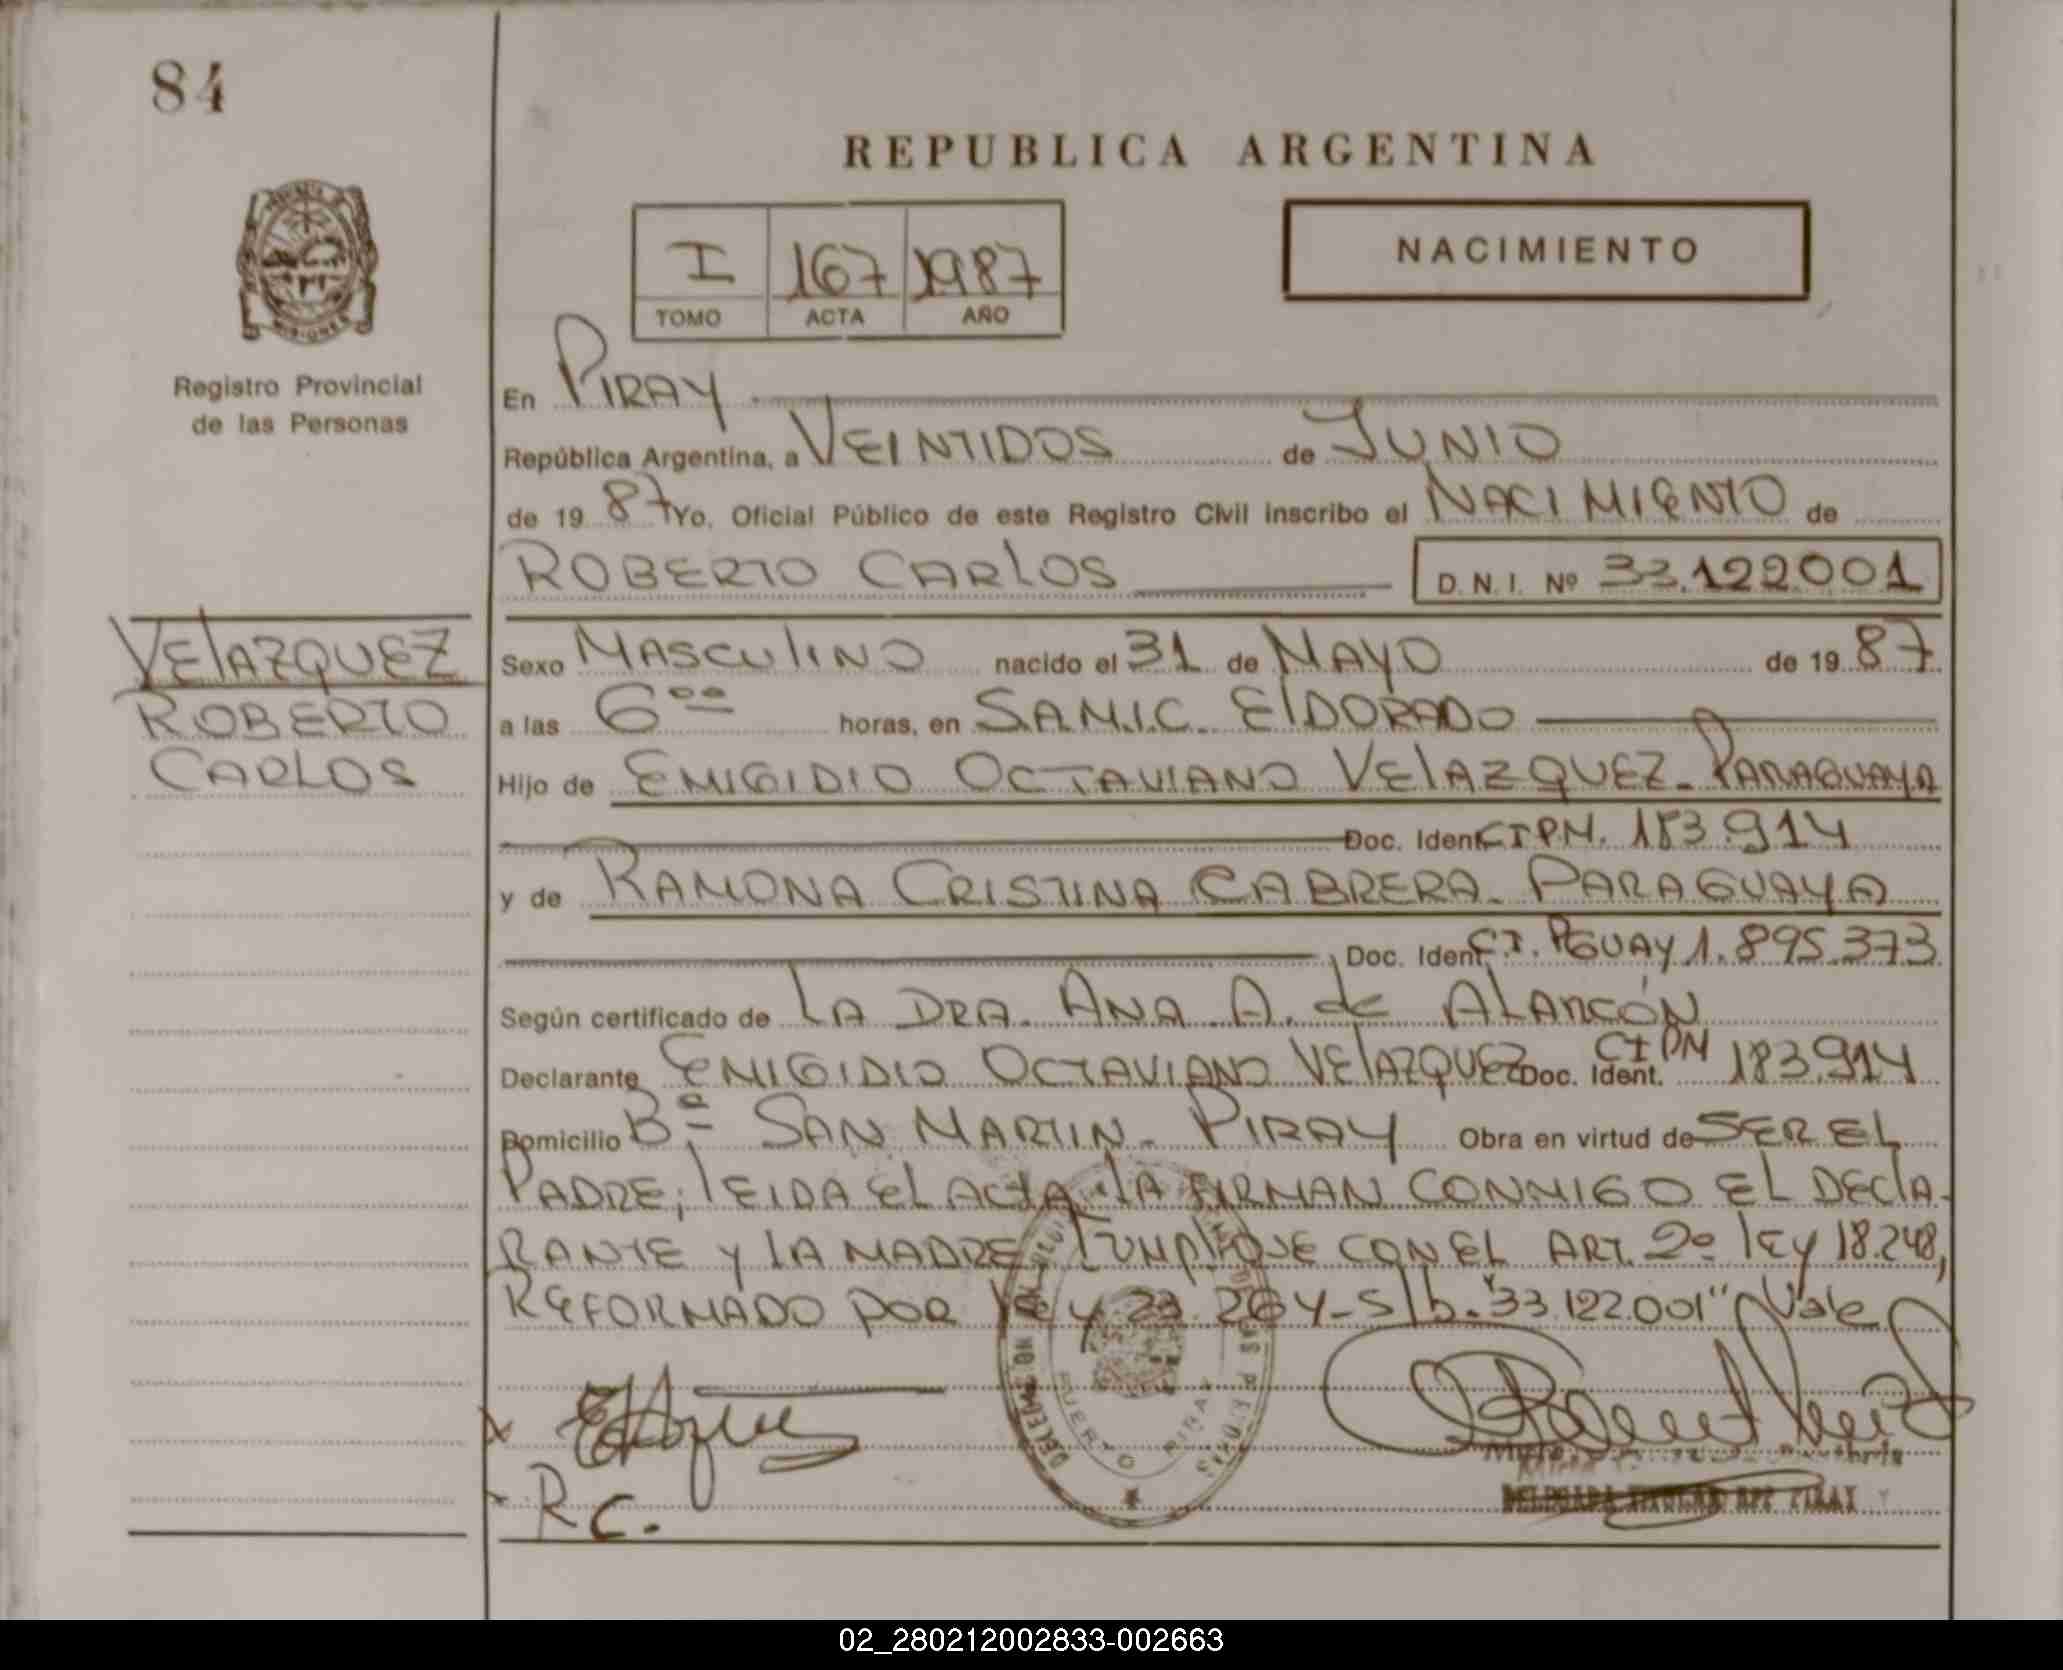 84
REPUBLICA ARGENTINA
I 167 1987
TOMO ACTA AÑO
NACIMIENTO
MISIONES
Registro Provincial
de las Personas
En PIRAY
República Argentina, a VEINTIDOS de JUNIO
de 19 87 Yo, Oficial Público de este Registro Civil inscribo el NACIMIENTO de
ROBERTO CARLOS D. N. I. Nº 33.122.001
VELAZQUEZ
ROBERTO
CARLOS
Sexo MASCULINO nacido el 31 de MAYO de 19 87
a las 6 00 horas, en S.A.M.I.C. ELDORADO
Hijo de EMIGIDIO OCTAVIANO VELAZQUEZ - PARAGUAYA
Doc. Ident. CIPM. 183.914
y de RAMONA CRISTINA CABRERA - PARAGUAYA
Doc. Ident. C.I. PGUAY 1.895.373
Según certificado de LA DRA. ANA A. de ALARCÓN
Declarante EMIGIDIO OCTAVIANO VELAZQUEZ Doc. Ident. CIPM 183.914
Domicilio Bº SAN MARTIN - PIRAY Obra en virtud de SER EL
PADRE; LEIDA EL ACTA LA FIRMAN CONMIGO EL DECLA-
RANTE Y LA MADRE CUMPLIOSE CON EL ART. 2º LEY 18.248,
REFORMADO POR LEY 23.264 - S/b. "33.122.001" Vale
R C.
PUERTO PIRAY
DELEGADA TITULAR RPP PIRAY
02_280212002833-002663